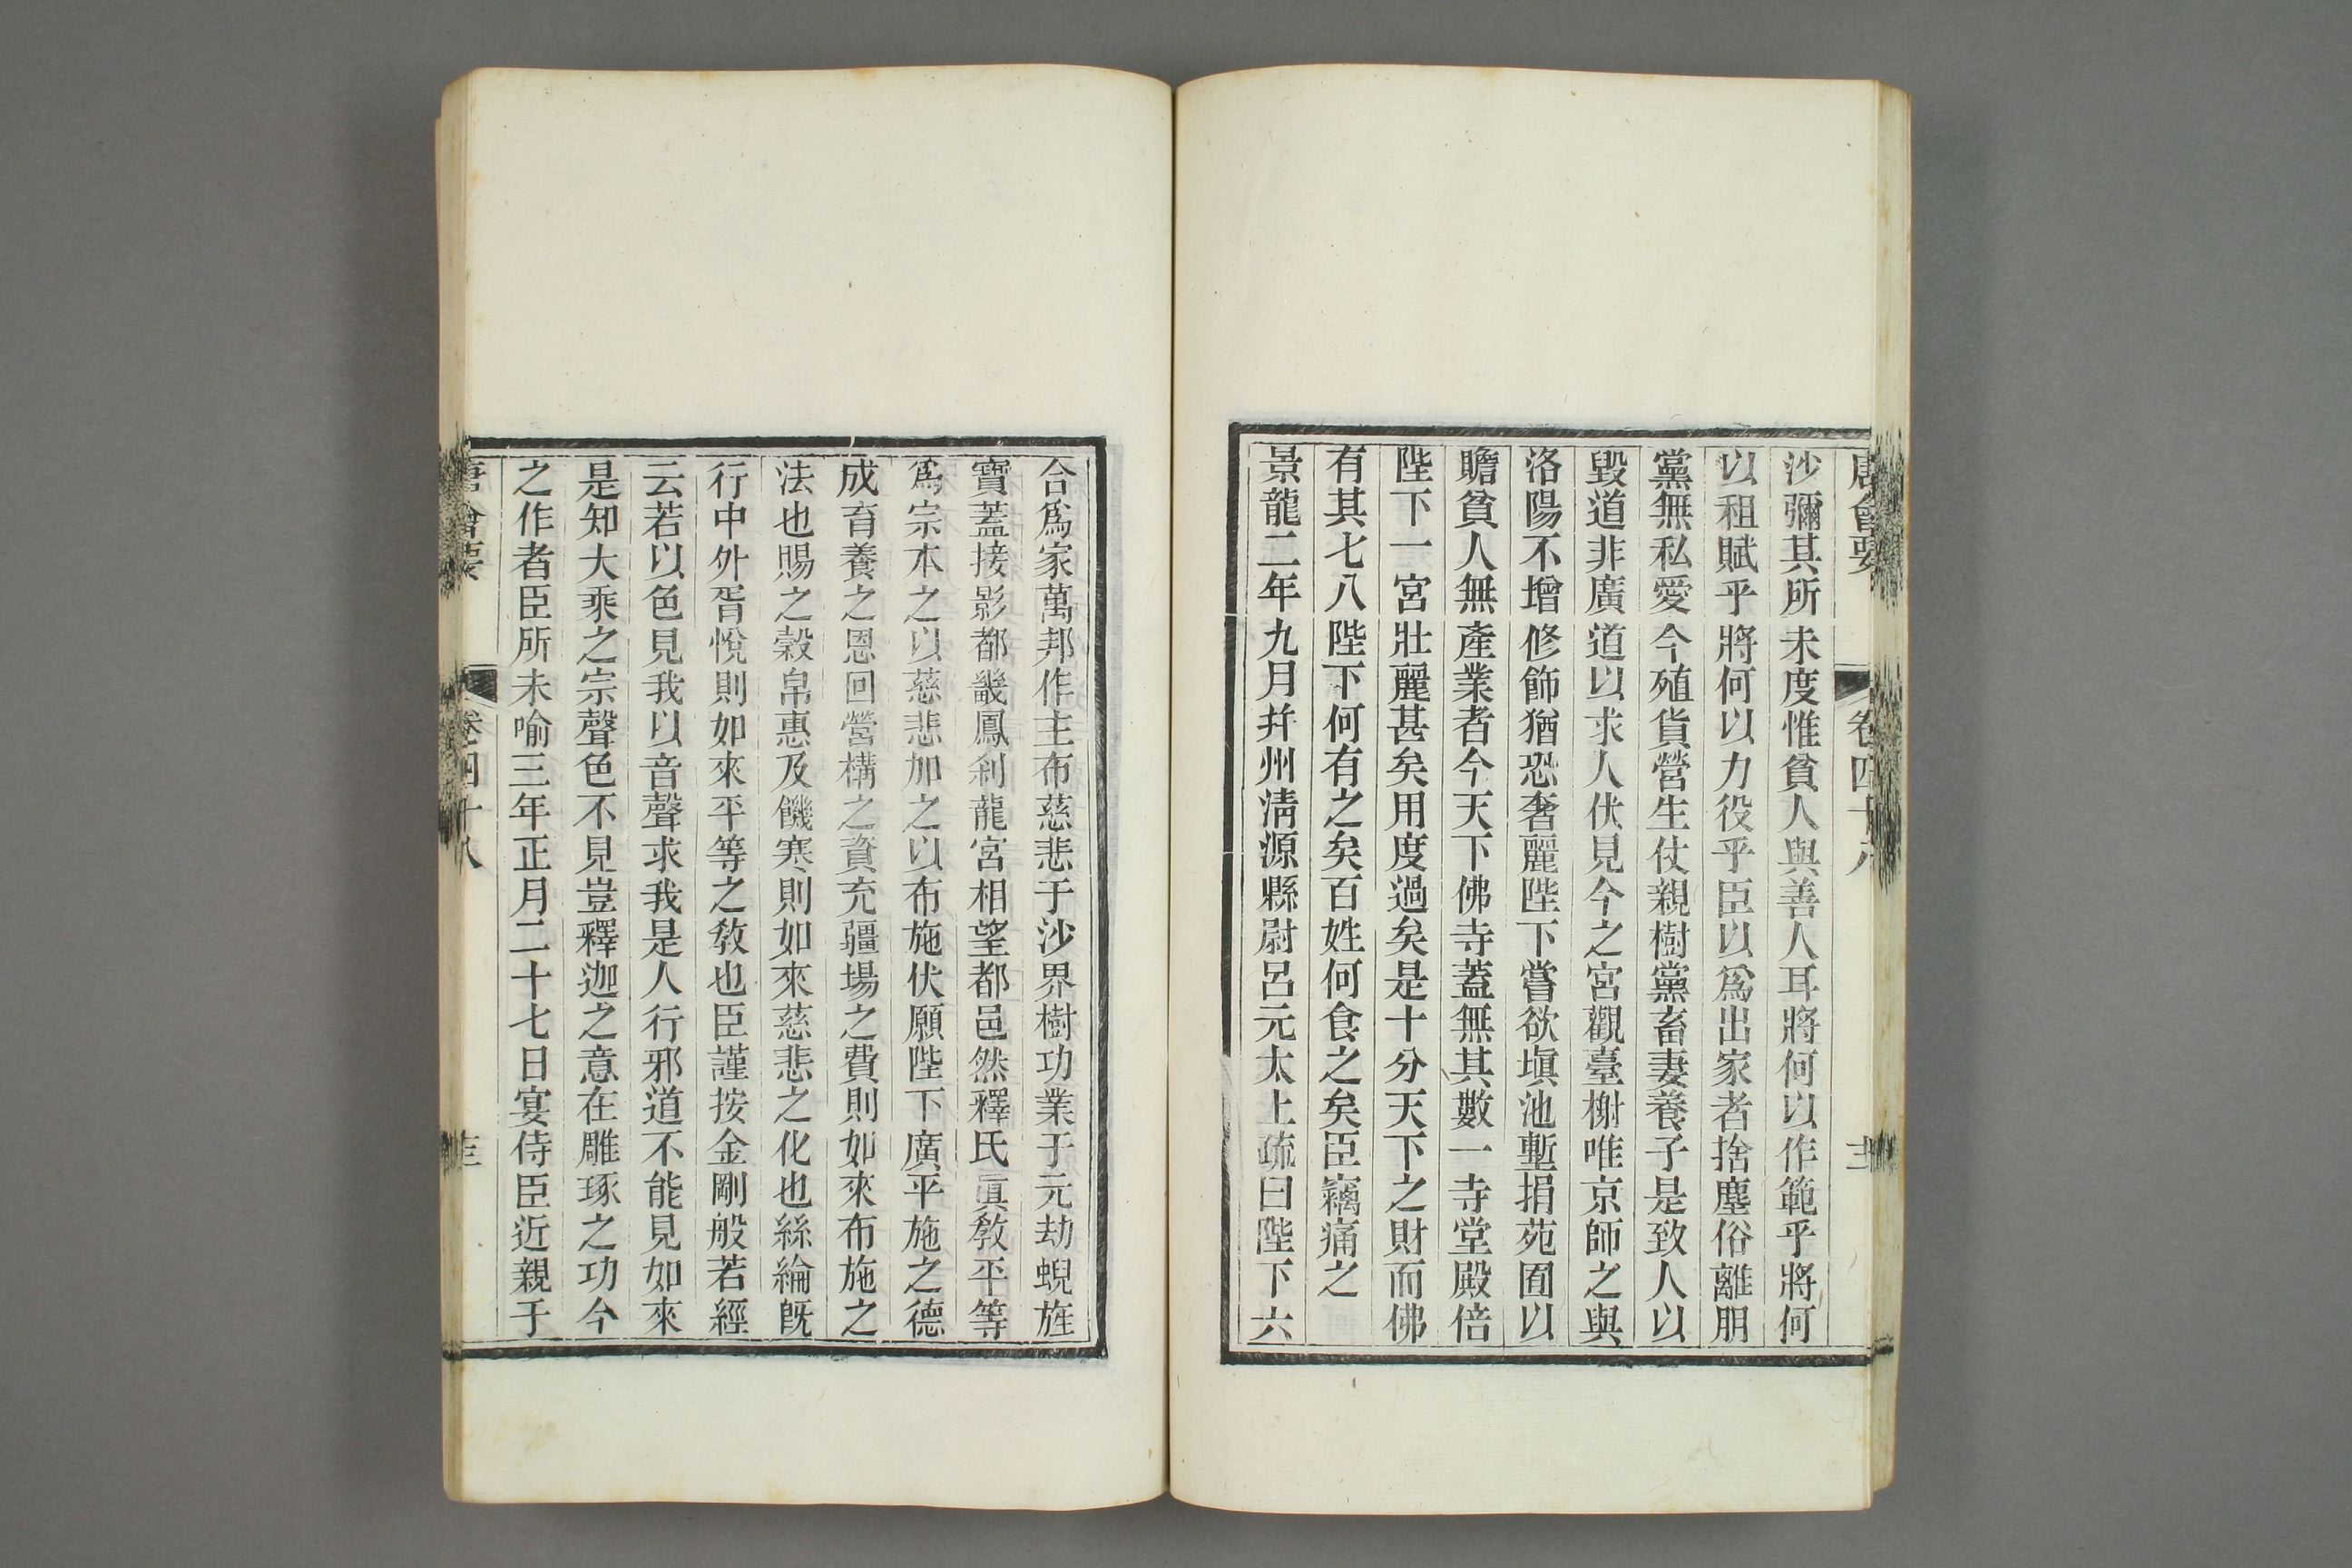 唐會要 卷四十八 十二
沙彌其所未度惟貧人與善人耳將何以作範乎將何
以租賦乎將何以力役乎臣以爲出家者捨塵俗離朋
黨無私愛今殖貨營生仗親樹黨畜妻養子是致人以
毀道非廣道以求人伏見今之宮觀臺榭唯京師之與
洛陽不增修飾猶恐奢麗陛下嘗欲塡池塹捐苑囿以
贍貧人無產業者今天下佛寺蓋無其數一寺堂殿倍
陛下一宮壯麗甚矣用度過矣是十分天下之財而佛
有其七八陛下何有之矣百姓何食之矣臣竊痛之
景龍二年九月幷州淸源縣尉呂元太上疏曰陛下六
合爲家萬邦作主布慈悲于沙界樹功業于元劫蜺旌
寶蓋接影都畿鳳刹龍宮相望都邑然釋氏眞敎平等
爲宗本之以慈悲加之以布施伏願陛下廣平施之德
成育養之恩回營構之資充疆場之費則如來布施之
法也賜之穀帛惠及饑寒則如來慈悲之化也絲綸旣
行中外胥悅則如來平等之敎也臣謹按金剛般若經
云若以色見我以音聲求我是人行邪道不能見如來
是知大乘之宗聲色不見豈釋迦之意在雕琢之功今
之作者臣所未喻三年正月二十七日宴侍臣近親于
唐會要 卷四十八 十三